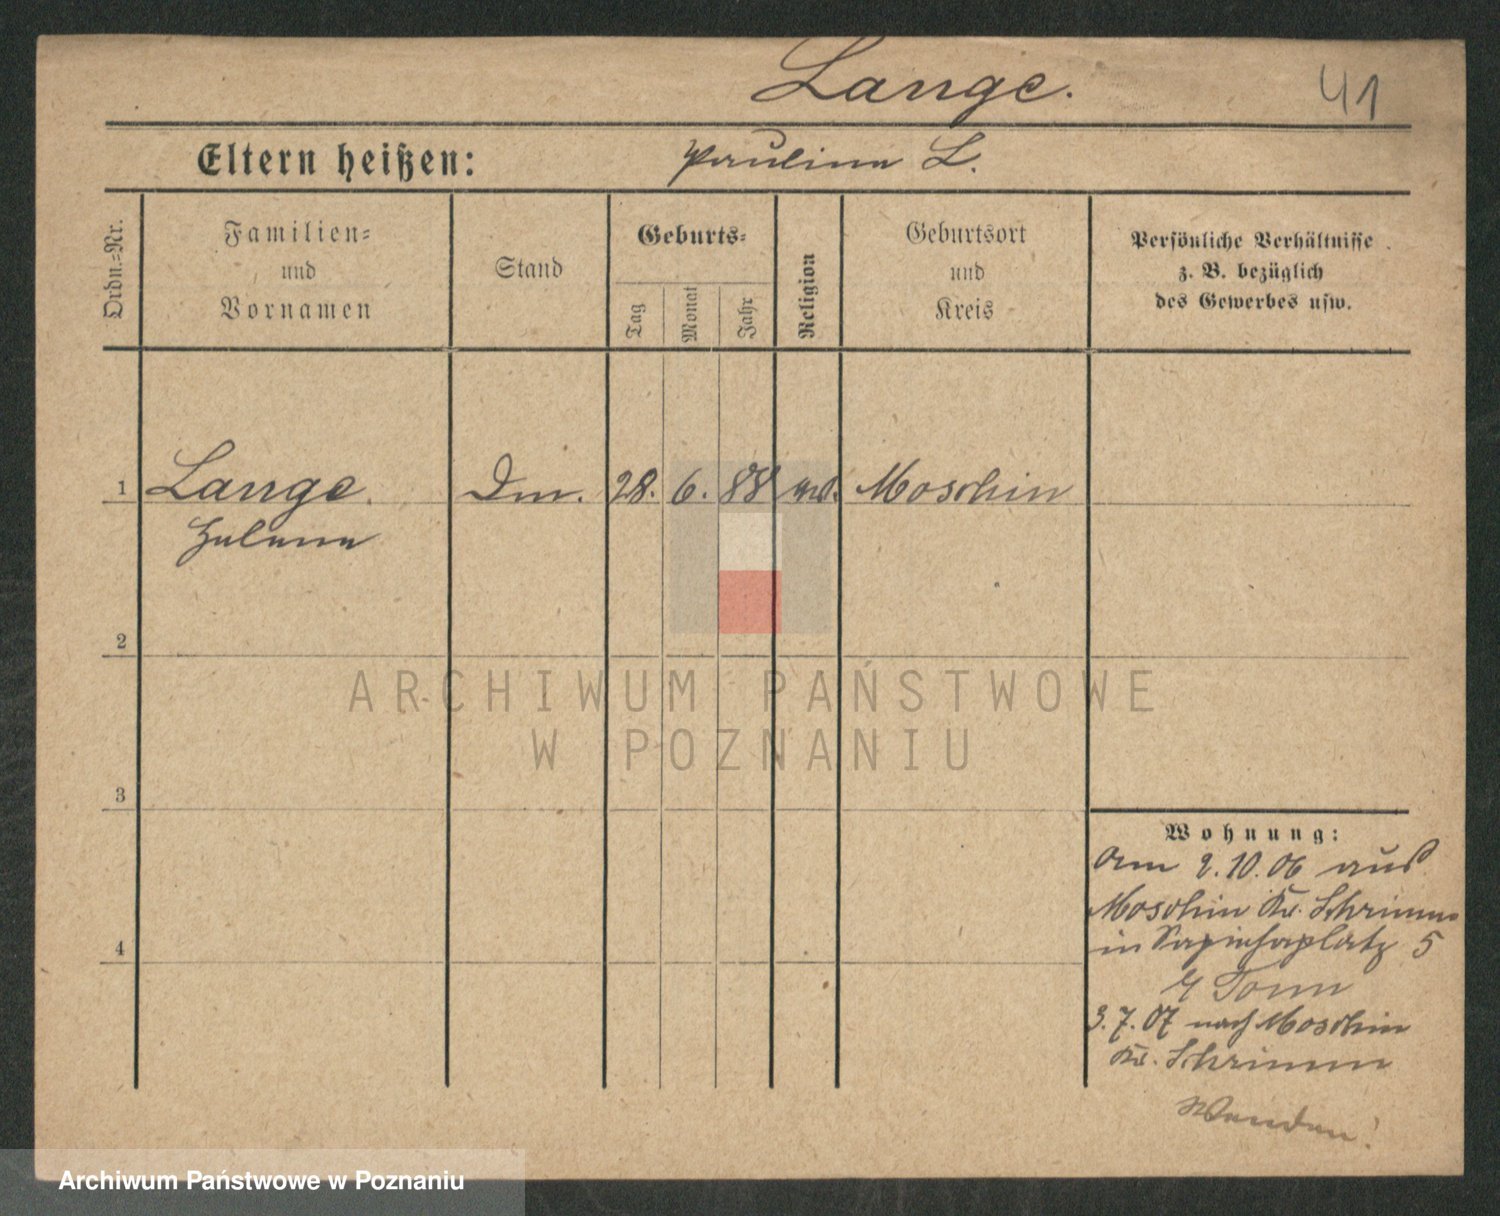 Lange.
41
Eltern heißen:
Pauline L.
Ordn.-Nr.
Familien-
und
Vornamen
Stand
Geburts-
Tag
Monat
Jahr
Religion
Geburtsort
und
Kreis
Persönliche Verhältnisse
z. B. bezüglich
des Gewerbes usw.
1 Lange. 28. 6. 88 Moschin
Helene
2
3
4
Wohnung:
Am 2.10.06 aus
Moschin Kr. Schrimm
in Sapiehaplatz 5
3.7.07 nach Moschin
Kr. Schrimm
Wenden!
ARCHIWUM PAŃSTWOWE
W POZNANIU
Archiwum Państwowe w Poznaniu